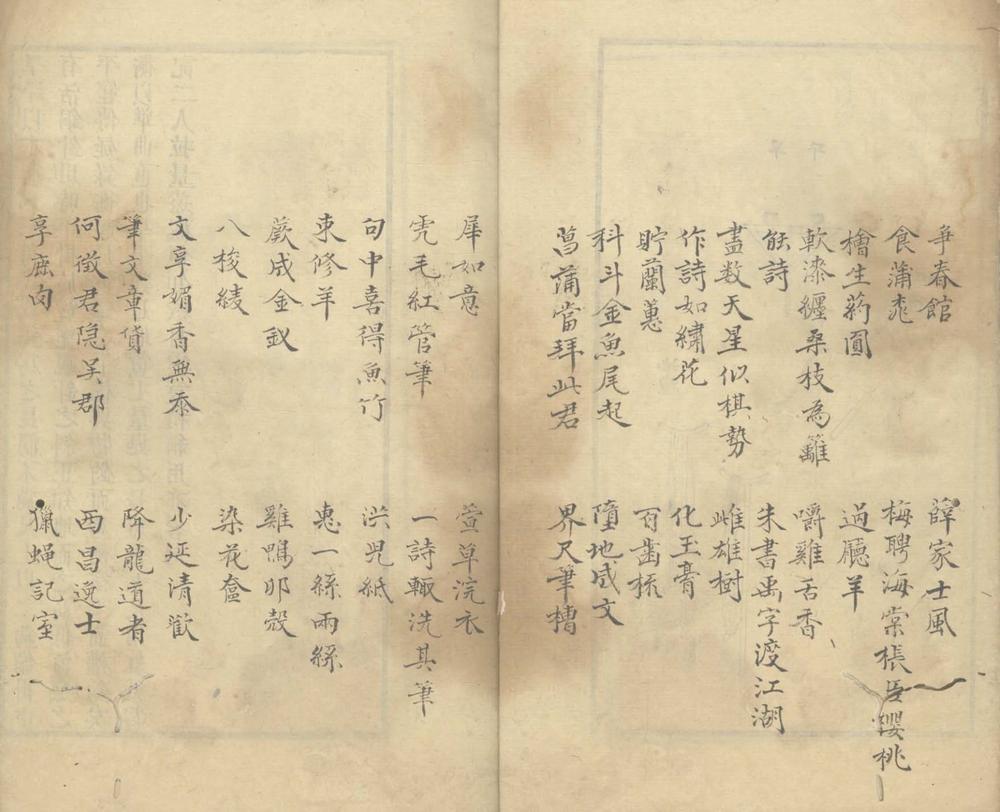 爭春館
薛家士風
食蒲
梅聘海棠棖臣櫻桃
檜生葯圓
過廳羊
軟漆纏桑枝為籬
嚼雞舌香
飫詩
朱書禹字渡江湖
畫数天星似棋勢
雌雄樹
作詩如繡花
化玉膏
貯蘭蕙
百齒梳
科斗金魚尾起
墮地成文
菖蒲當拜此君
界尺筆槽
犀如意
萱草浣衣
禿毛紅管筆
一詩輙洗其筆
句中喜得魚竹
洪児紙
束修羊
惠一絲兩絲
蕨成金釵
雞鴨卵殼
八梭綾
染花奩
文享媚香無忝
少延清歡
筆文章貨
降龍道者
何徵君隐吴郡
西昌逸士
享鹿肉
獵蝇記室